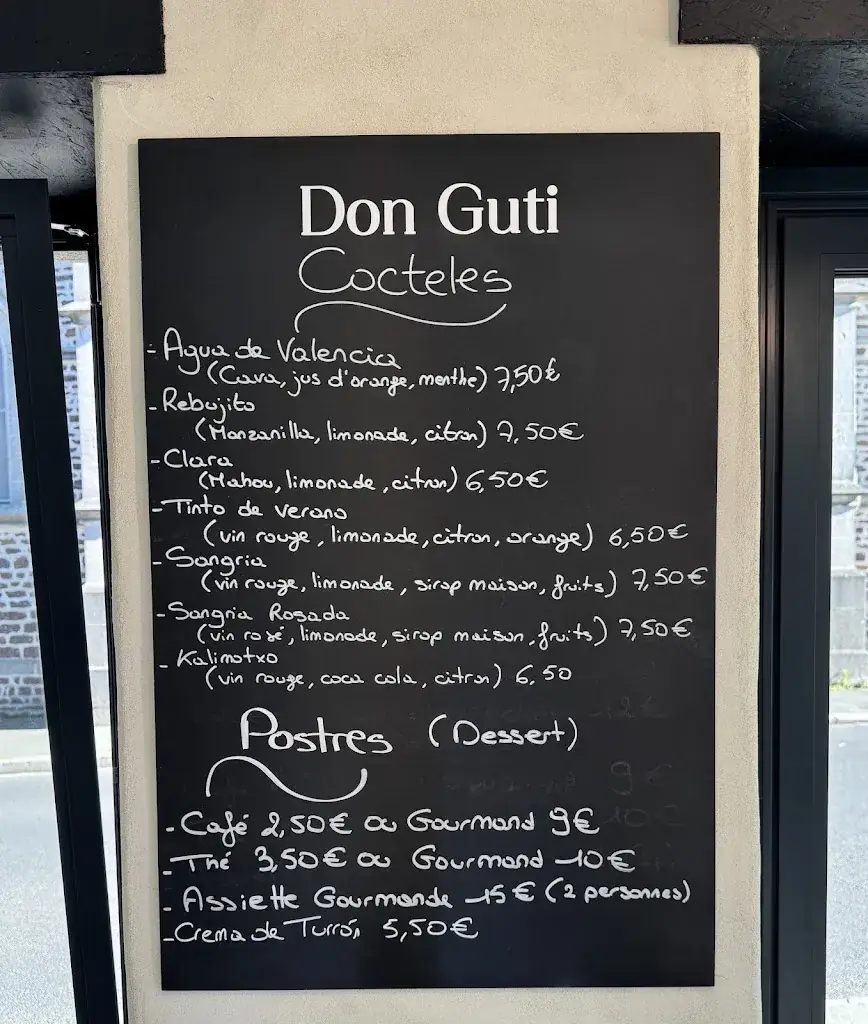 Don Guti
Cocteles
- Agua de Valencia
(Cava, jus d'orange, menthe) 7,50€
- Rebujito
(Manzanilla, limonade, citron) 7,50€
- Clara
(Mahou, limonade, citron) 6,50€
- Tinto de verano
(vin rouge, limonade, citron, orange) 6,50€
- Sangria
(vin rouge, limonade, sirop maison, fruits) 7,50€
- Sangria Rosada
(vin rosé, limonade, sirop maison, fruits) 7,50€
- Kalimotxo
(vin rouge, coca cola, citron) 6,50
Postres (Dessert)
- Café 2,50€ ou Gourmand 9€
- Thé 3,50€ ou Gourmand 10€
- Assiette Gourmande 15€ (2 personnes)
- Crema de Turrón 5,50€